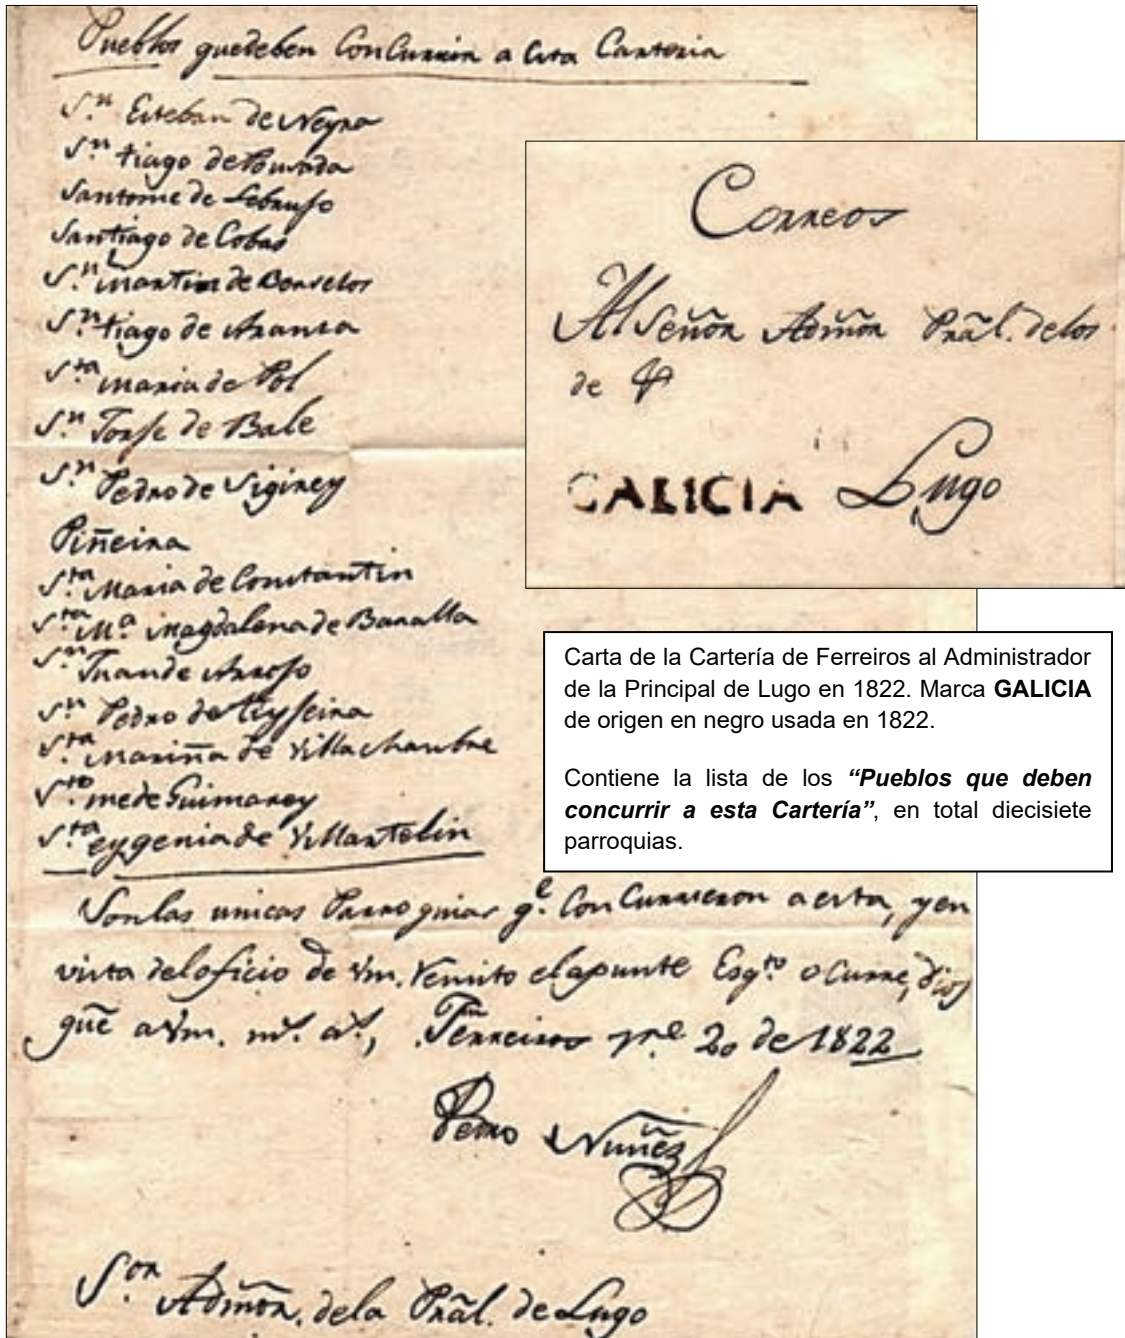 Pueblos quedeben Concurrir a esta Carteria
S.n Esteban de Neyra
S.n tiago de Pousada
Santome de Lebrufo
Santiago de Cobas
S.n Martin de
S.n tiago de
S.ta Maria de Pol
S.n de Bale
S.n Pedro de Sigirey
Piñeira
S.ta Maria de Constantin
S.ta M.a Magdalena de Baralla
S.n Juan de
S.n Pedro de
S.ta Mariña de Villachambre
S.to mede Guimarey
S.ta eygenia de Villartelin
Sonlas unicas Parroquias q.e Concurrieron a esta, y en
vista del oficio de Vm. remito el apunte ocurre, dios
gue a Vm. m.s a.s, Ferreiros 20 de 1822
Pedro Nuñez
S.or Admõr. dela Prãl. de Lugo
Correos
Al Señor Admõr Prãl. delos
de
GALICIA Lugo
Carta de la Cartería de Ferreiros al Administrador
de la Principal de Lugo en 1822. Marca GALICIA
de origen en negro usada en 1822.
Contiene la lista de los “Pueblos que deben
concurrir a esta Cartería”, en total diecisiete
parroquias.